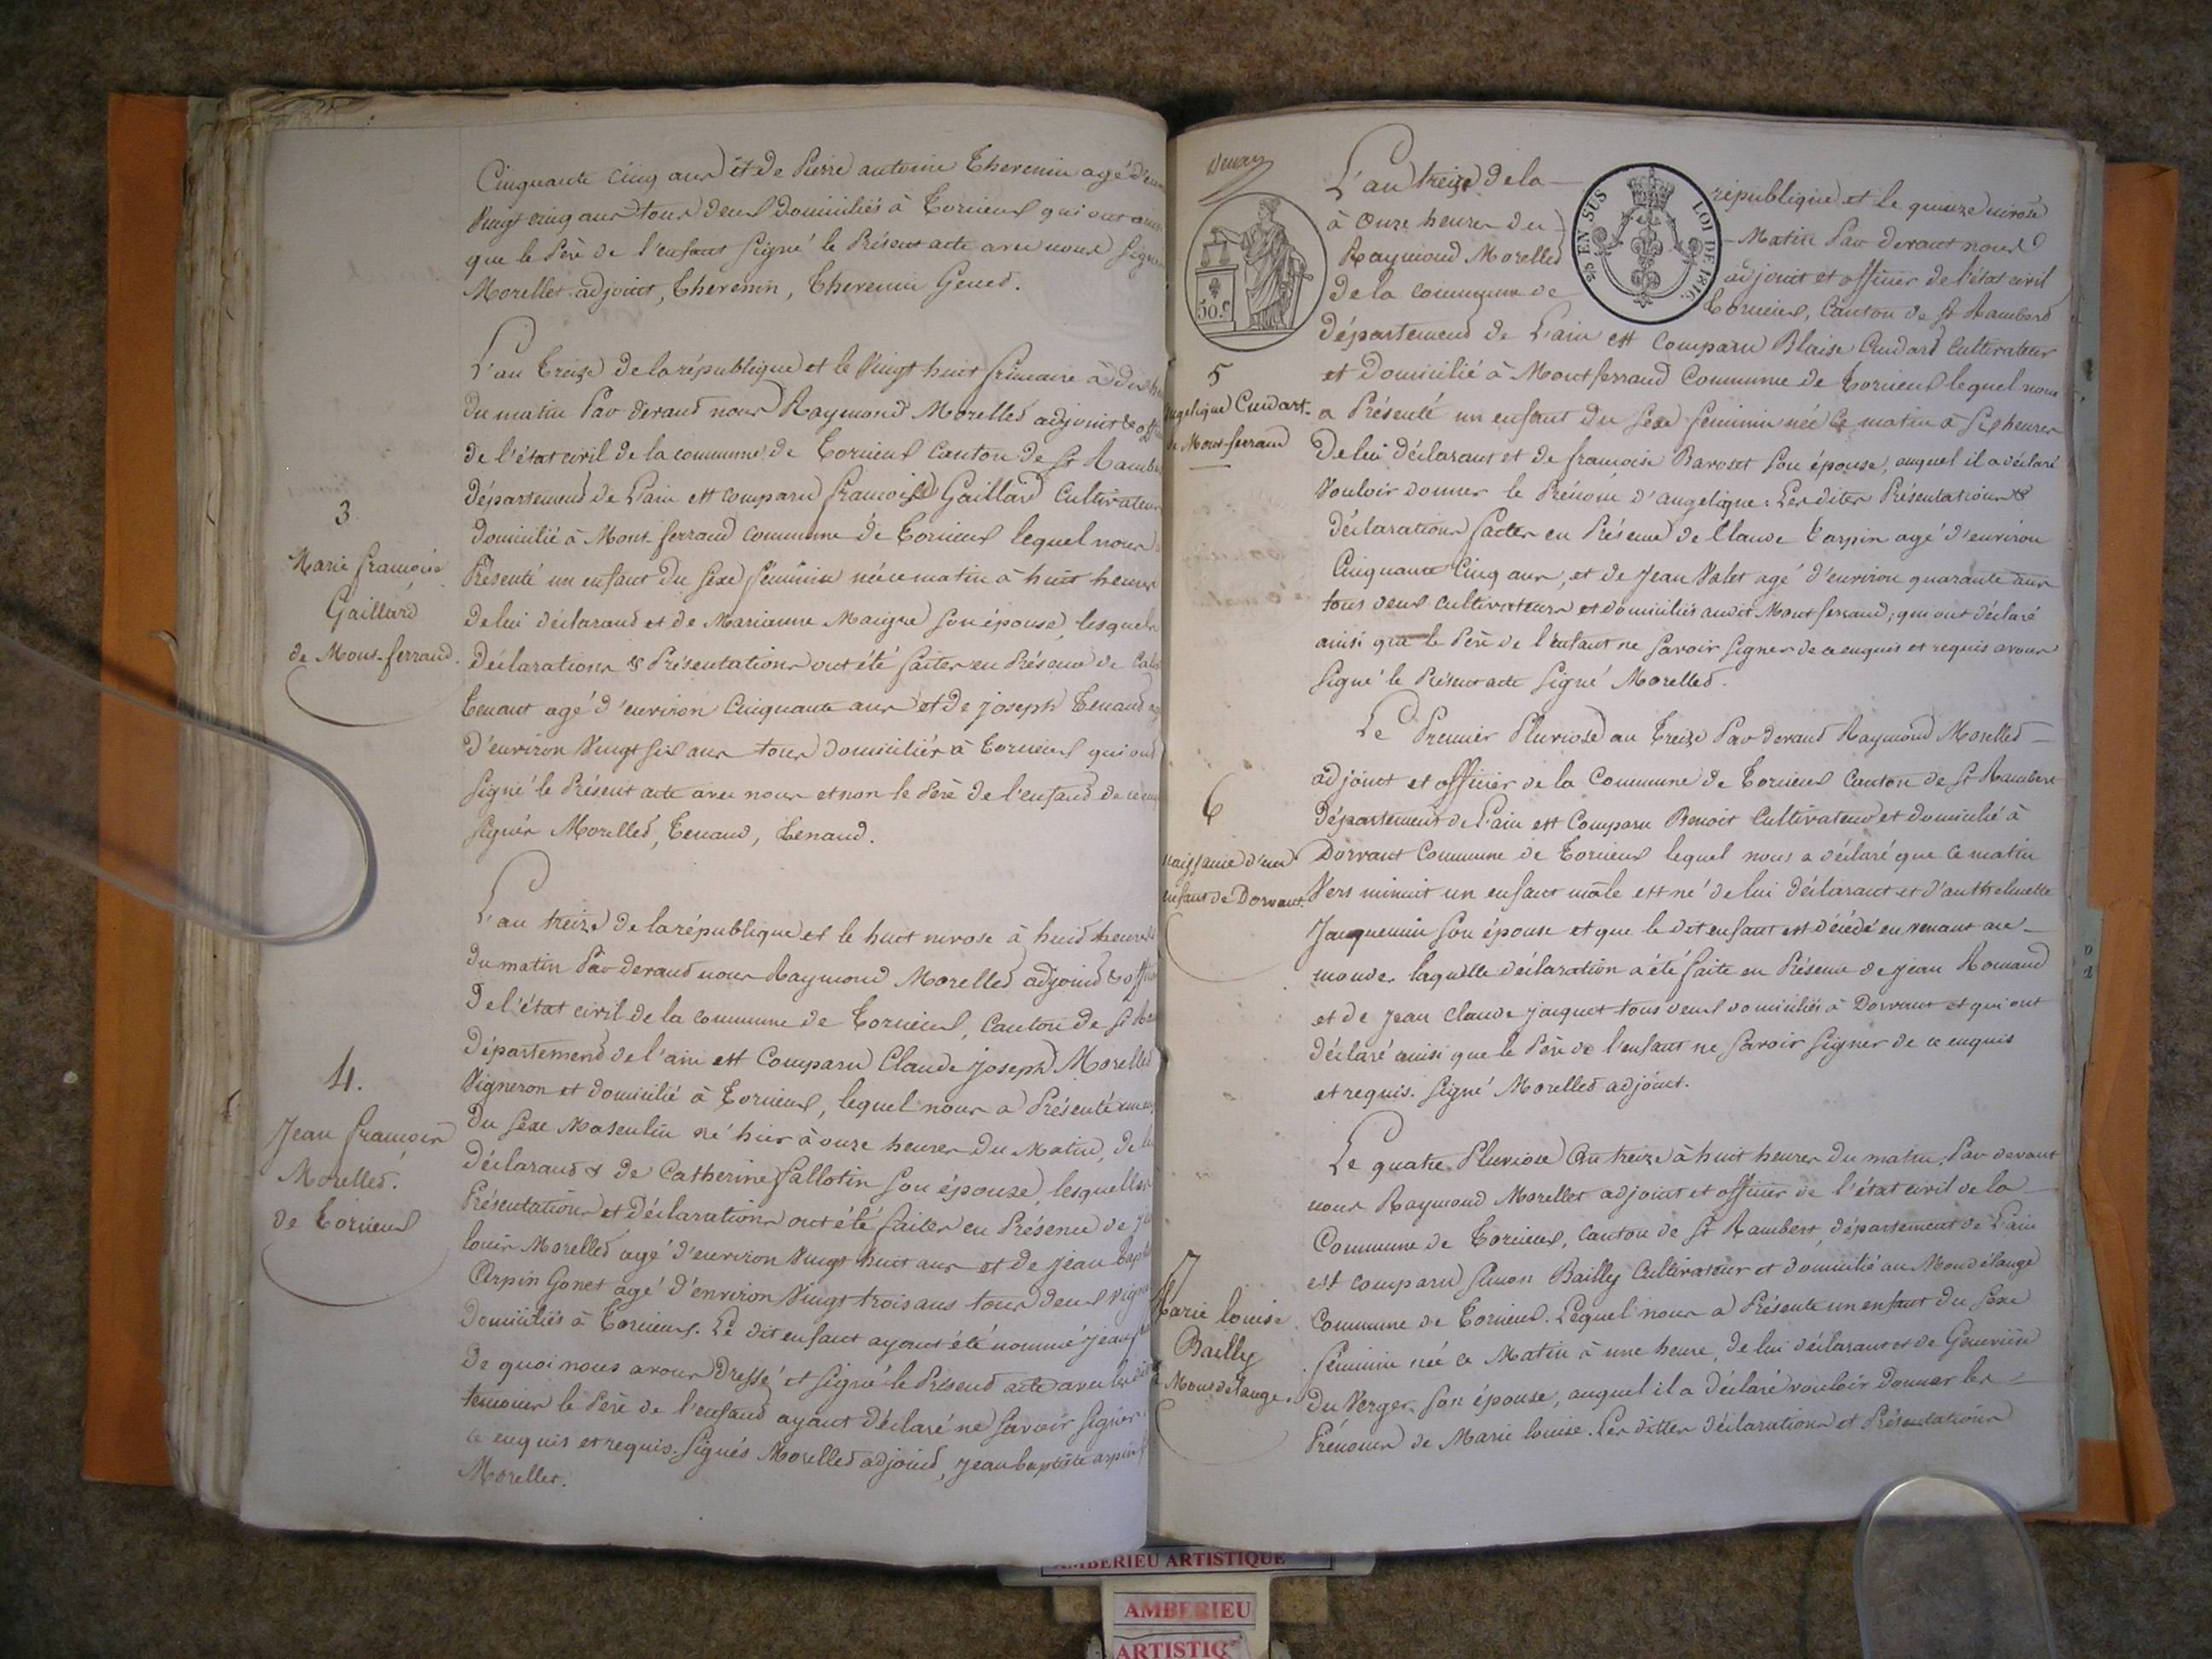 Cinquante Cinq ans et de Pierre antoine Thevenin agé d'environ
Vingt cinq ans tous deux domiciliés à Torcieux qui ont ainsi
que le Père de l'enfant Signé le Présent acte avec nous Signé
Morellet adjoint, Thevenin, Thevenin Genet.
L'an Treize de la république et le Vingt huit frimaire à dix h
du matin Par devand nous Raymond Morelled adjoint & off
de l'état civil de la commune de Torcieux Canton de St Rambe
Département de L'ain est comparu françois Gaillard Cultivateur
domicilié à Mont-ferrand commune de Torcieux lequel nous
Présenté un enfant du Sexe féminin née ce matin à huit heures
de lui déclarand et de Marianne Maigre son épouse, lesquels
déclarations & Présentations ont été faites en Présence de
Tenant agé d'environ Cinquante ans et de joseph Tenand
d'environ Vingt six ans tous domiciliés à Torcieux qui ont
signé le Présent acte avec nous et non le Père de l'enfand de ce
signés Morelled, Tenand, Tenand.
3
Marie françoise
Gaillard
de Mont-ferrand.
L'an treize de la république et le huit nivose à huid heures
du matin Par devand nous Raymond Morelled adjoind & off
de l'état civil de la commune de Torcieux, Canton de St
Département de l'ain est Comparu Claude joseph Morelled
Vigneron et domicilié à Torcieux, lequel nous a Présenté un
du Sexe Masculin né hier à onze heures du Matin, de
déclarand & de Catherine Sallotin son épouse, lesquelles
Présentations et déclarations ont été faites en Présence de
louis Morelled agé d'environ Vingt huit ans et de jean bap
Arpin Gonet agé d'environ Vingt trois ans tous deux vign
domiciliés à Torcieux. Le dit enfant ayant été nommé jean
de quoi nous avons dressé et signé le Présend acte avec les dit
temoins le Père de l'enfand ayant déclaré ne savoir signer
ce enquis et requis. Signés Morelled adjoind, jean baptiste arpin
Morellet.
4.
Jean françois
Morelled.
de Torcieux
SUS
EN SUS
LOI DE 1816.
50.C
L'an treize de la république et le quinze nivose
à Onze heures du Matin Par devant nous
Raymond Morelled adjoint et officier de l'état civil
de la commune de Torcieux, Canton de St Rambert
département de L'ain est Comparu Blaise Cudard Cultivateur
et Domicilié à Montferrand Commune de Torcieux lequel nous
a Présenté un enfant du Sexe féminin née ce matin à six heures
de lui déclarant et de francoise Baroset son épouse, auquel il a déclaré
Vouloir donner le Prénom d'angelique. Les dites Présentations &
déclarations faites en Présence de Claude Tarpin agé d'environ
Cinquante Cinq ans, et de Jean Valet agé d'environ quarante ans
tous deux cultivateurs et domiciliés audit Montferrand, qui ont déclaré
ainsi que le Père de l'enfant ne savoir signer de ce enquis et requis avons
signé le Présent acte signé Morelled.
5
ngelique Cudart.
de Mont-ferrand
Le Premier Pluviose an Treize Par devand Raymond Morelled
adjoint et officier de la Commune de Torcieux Canton de St Rambert
Département de L'ain est Comparu Benoit Cultivateur et domicilié à
Dorvant Commune de Torcieux lequel nous a déclaré que ce matin
Vers minuit un enfant mâle est né de lui déclarant et d'anthelmette
Jacquemin son épouse et que le dit enfant est décédé en venant au
monde. laquelle déclaration a été faite en Présence de jean Romand
et de Jean claude jacquet tous deux domiciliés à Dorvant et qui ont
déclaré ainsi que le Père de l'enfant ne savoir signer de ce enquis
et requis. signé Morelled adjoint.
6
naissance d'un
enfant de Dorvant.
Le quatre Pluviose an treize à huit heures du matin, Par devant
nous Raymond Morellet adjoint et officier de l'état civil de la
Commune de Torcieux, Canton de St Rambert, département de L'ain
est comparu Simon Bailly Cultivateur et domicilié au Mondélange
Commune de Torcieux. Lequel nous a Présenté un enfant du Sexe
féminin née ce Matin à une heure, de lui déclarant et de Geneviève
du Verger son épouse, auquel il a déclaré vouloir donner les
Prénoms de Marie louise. Les dittes déclarations et Présentations
7
Marie louise
Bailly
Mondelange.
AMBERIEU ARTISTIQUE
AMBERIEU
ARTISTIQ